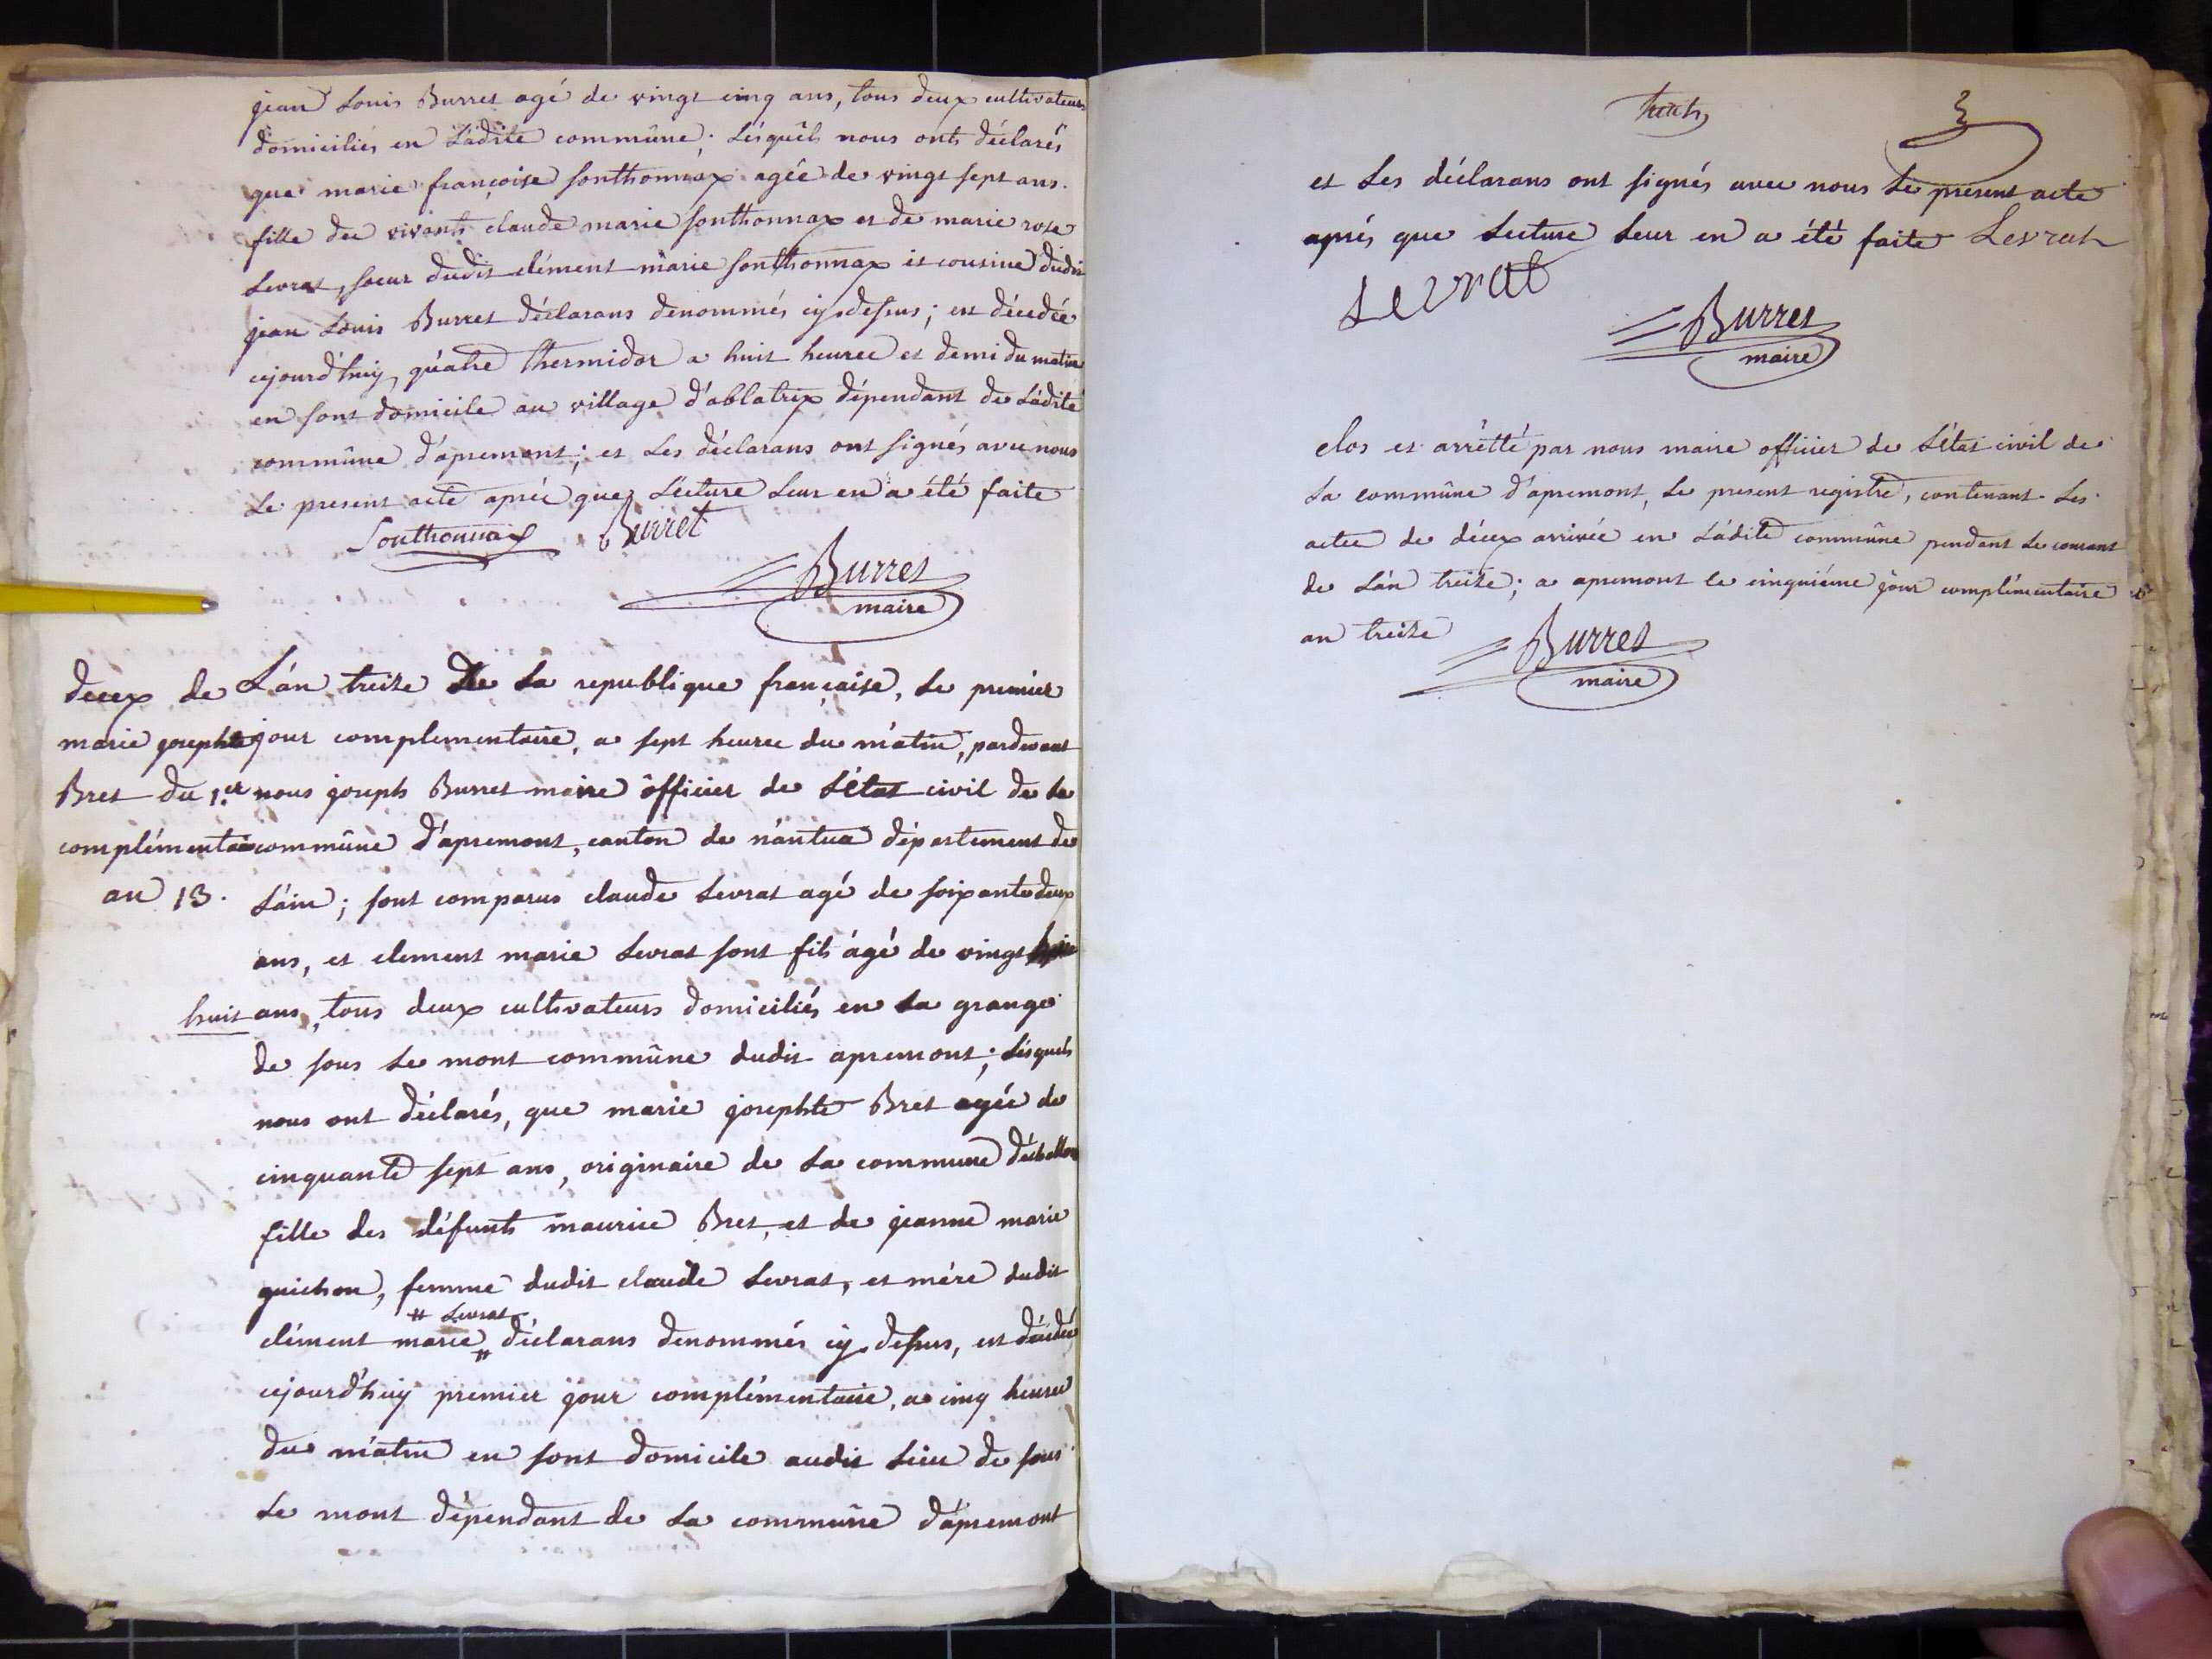 jean Louis Burret agé de vingt cinq ans, tous deux cultivateurs
domiciliés en Ladite commûne; Lésquêls nous onts déclarés
que marie françoise sonthonnax agéé de vingt sept ans.
fille des vivants claude marie sonthonnax et de marie rose
Levrat, soeur dudit clément marie sonthonnax et cousine dudit
jean Louis Burret déclarans dénommés cy dessus; est décédée
cejourd'huy, quatre thermidor a huit heures et demi du matin
en sont domicile au village d'ablatrix dépendant de Ladite
commûne d'apremont; et Les déclarans ont signés avec nous
Le present acte aprés que Lecture Leur en a été faite
Sonthonnax Burret
Burret
maire
deces de
marie josephte
Bret du 1.er
complémentaire
an 13.
L'an treize De La republique française, Le premier
jour complementaire, a sept heures du matin, pardevant
nous joseph Burret maire ôfficier de Létat civil de La
commûne d'apremont, canton de nantua département de
L'ain; sont comparus claude Levrat agé de soixante deux
ans, et clement marie Levrat sont fils âgé de vingt
huit ans, tous deux cultivateurs domiciliés en La grange
de sous Le mont commûne dudit apremont; Lésquels
nous ont déclarés, que marie josephte Bret agée de
cinquante sept ans, originaire de La commune d'échallon
fille des défunts maurice Bret, et de jeanne marie
guichon, femme dudit claude Levrat, et mére dudit
# Levrat
clément marie # déclarans denommés cy dessus, est décédée
cejourd'huy premier jour complémentaire, a cinq heures
du matin en sont domicile audit Lieu de sous
Le mont dépendant de La commûne d'apremont
huit 3
et Les déclarans ont signés avec nous Le present acte
aprés que Lecture Leur en a été faite Levrat
Levrat
Burret
maire
clos et arrêtté par nous maire officier de Létat civil de
La commûne d'apremont, Le present registre, contenant Les
actes de décex arrivés en Ladite commûne pendant Le courant
de L'an treize; a apremont le cinquiéme jour complémentaire
an treize
Burret
maire